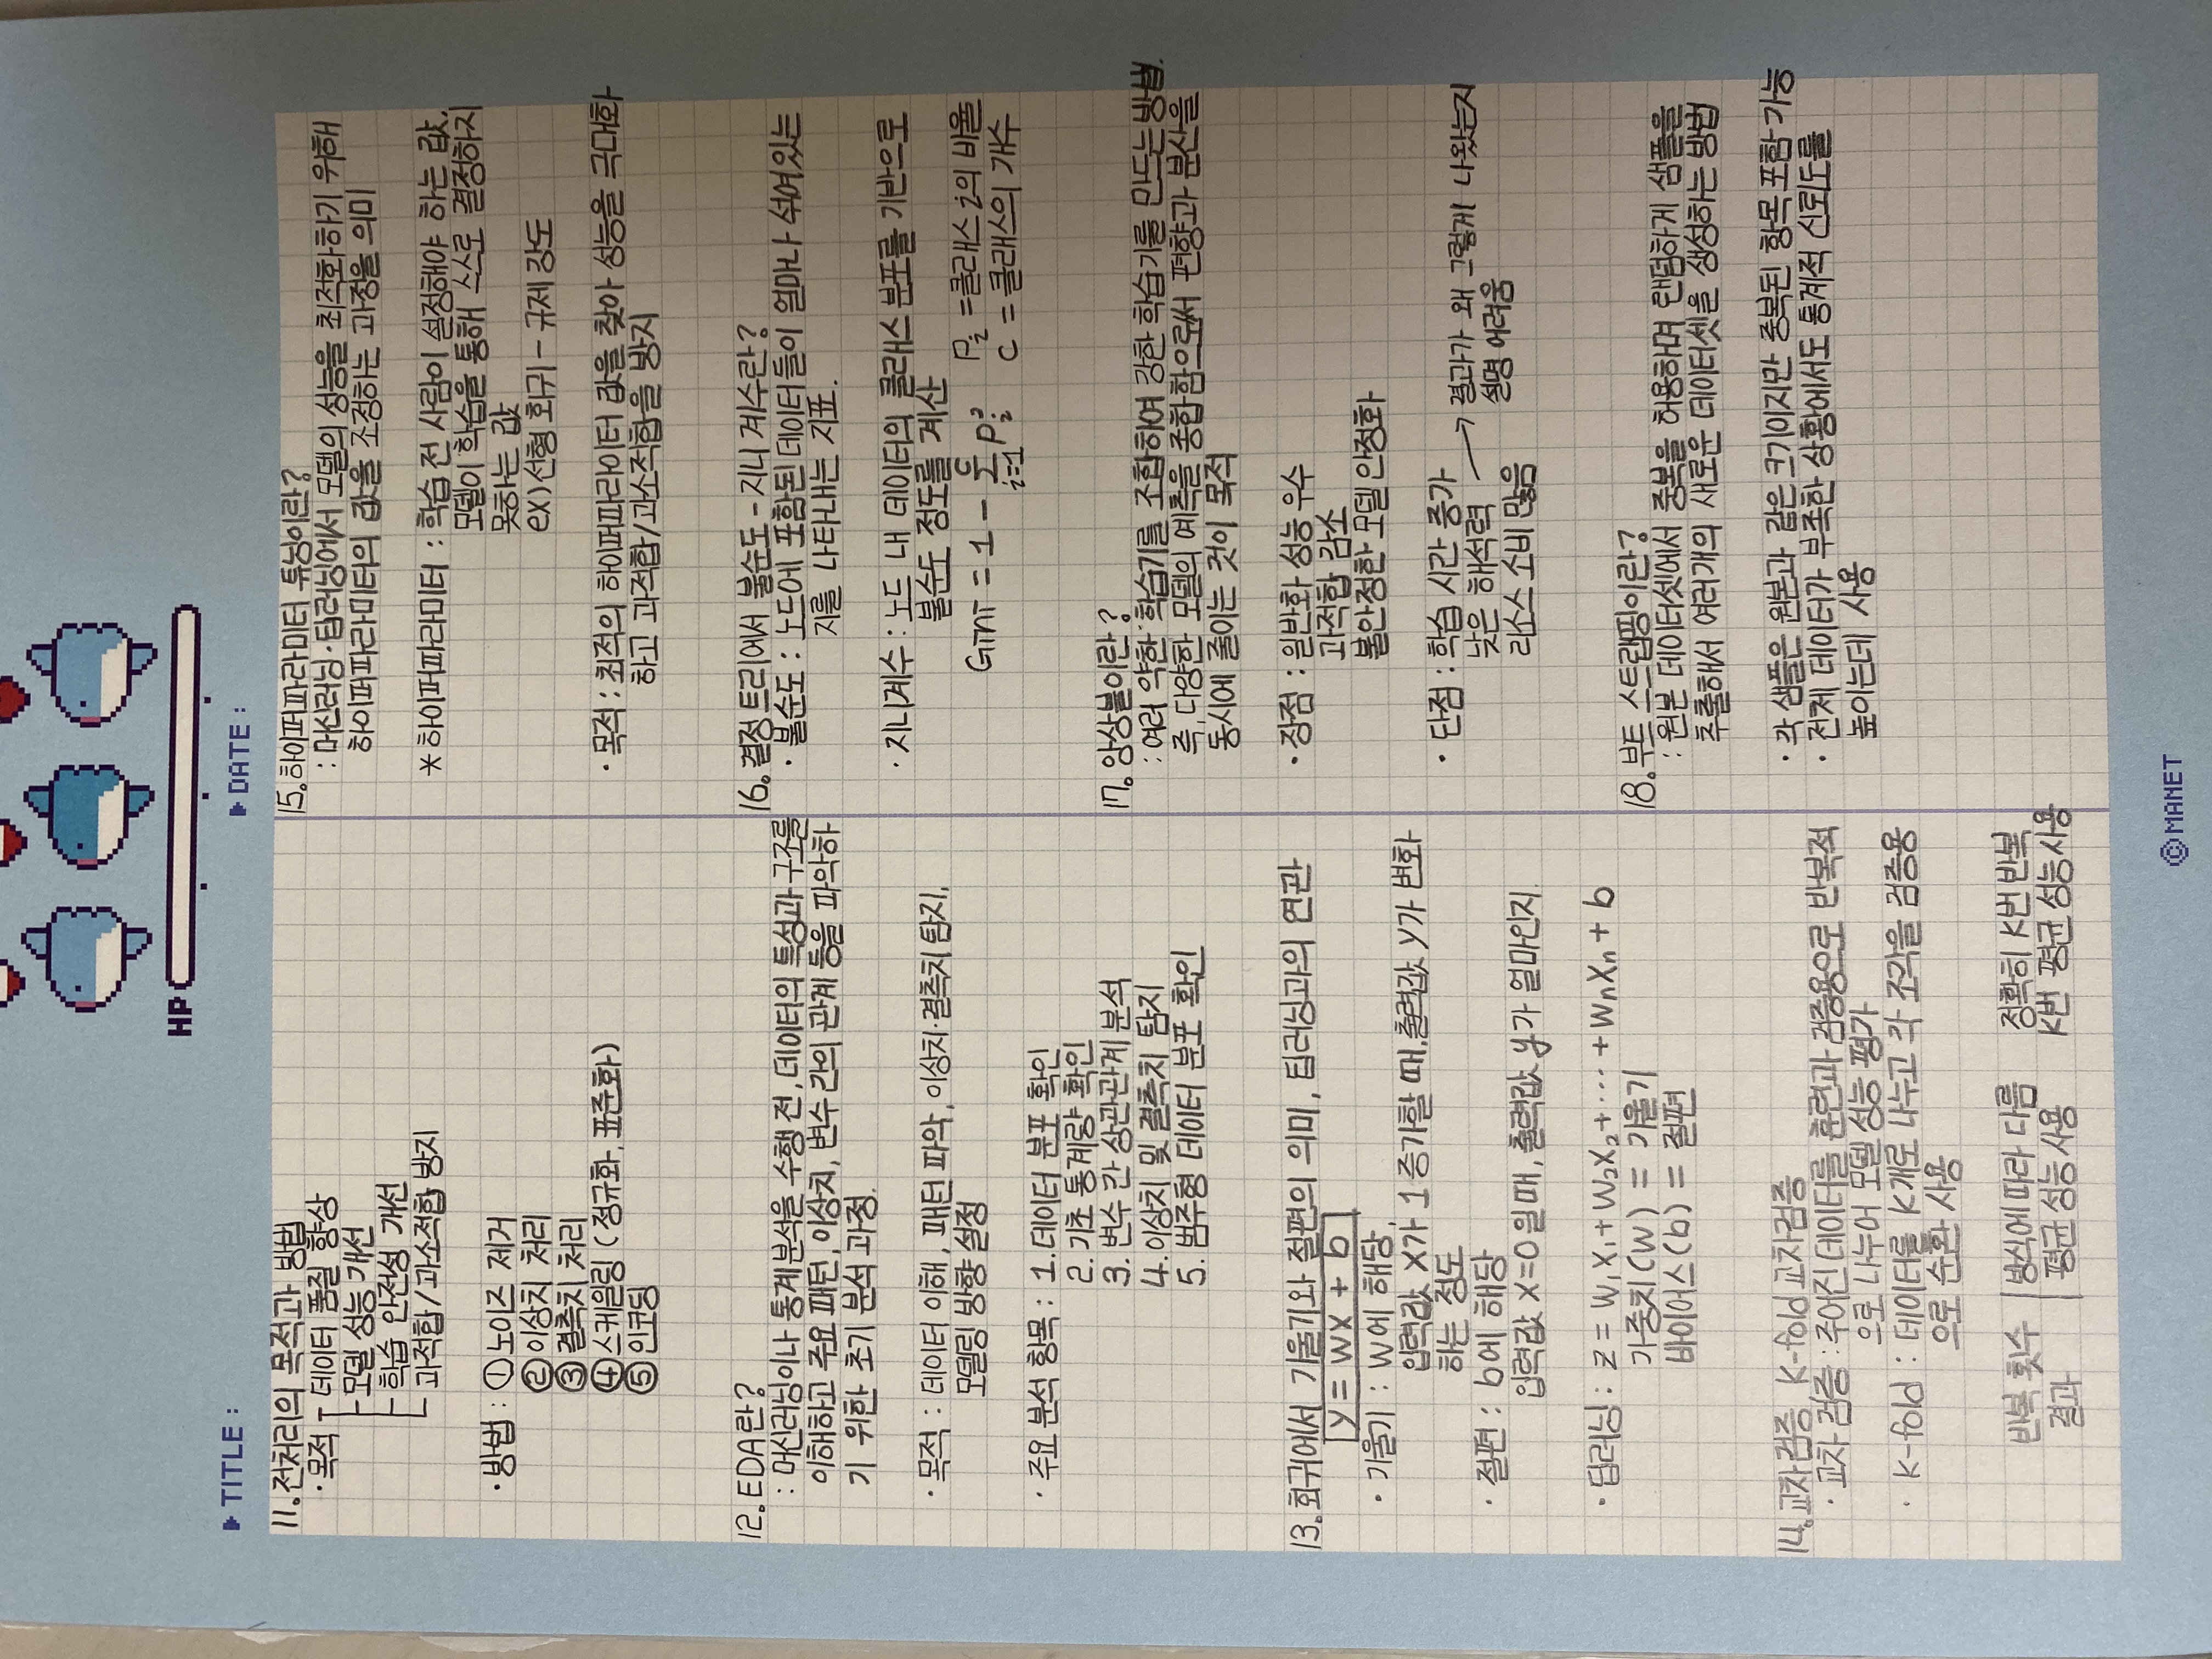 HP
TITLE :
DATE :
11. 전처리의 목적과 방법
· 목적 - 데이터 품질 향상
- 모델 성능 개선
- 학습 안전성 개선
- 과적합/과소적합 방지
· 방법 : ① 노이즈 제거
② 이상치 처리
③ 결측치 처리
④ 스케일링 (정규화, 표준화)
⑤ 인코딩
12. EDA란?
: 머신러닝이나 통계분석을 수행 전, 데이터의 특성과 구조를
이해하고 주요 패턴, 이상치, 변수 간의 관계 등을 파악하
기 위한 초기 분석 과정.
· 목적 : 데이터 이해, 패턴 파악, 이상치·결측치 탐지,
모델링 방향 설정
· 주요 분석 항목 : 1. 데이터 분포 확인
2. 기초 통계량 확인
3. 변수 간 상관관계 분석
4. 이상치 및 결측치 탐지
5. 범주형 데이터 분포 확인
13. 회귀에서 기울기와 절편의 의미, 딥러닝과의 연관
y = wx + b
· 기울기 : w에 해당,
입력값 x가 1 증가할 때, 출력값 y가 변화
하는 정도
· 절편 : b에 해당
입력값 x=0 일 때, 출력값 y가 얼마인지.
· 딥러닝 : z = w₁x₁ + w₂x₂ + ··· + wₙxₙ + b
가중치(w) = 기울기
바이어스(b) = 절편
14. 교차검증 K-fold 교차검증
· 교차 검증 : 주어진 데이터를 훈련과 검증용으로 반복적
으로 나누어 모델 성능 평가
· K-fold : 데이터를 K개로 나누고 각 조각을 검증용
으로 순환 사용
반복 횟수 | 방식에 따라 다름 정확히 K번 반복
결과 | 평균 성능 사용 K번 평균 성능 사용
15. 하이퍼파라미터 튜닝이란?
: 머신러닝·딥러닝에서 모델의 성능을 최적화하기 위해
하이퍼파라미터의 값을 조정하는 과정을 의미
* 하이퍼파라미터 : 학습 전 사람이 설정해야 하는 값,
모델이 학습을 통해 스스로 결정하지
못하는 값
ex) 선형 회귀 - 규제 강도
· 목적 : 최적의 하이퍼파라이터 값을 찾아 성능을 극대화
하고 과적합/과소적합을 방지
16. 결정 트리에서 불순도 - 지니 계수란?
· 불순도 : 노드에 포함된 데이터들이 얼마나 섞여있는
지를 나타내는 지표.
· 지니계수 : 노드 내 데이터의 클래스 분포를 기반으로
불순도 정도를 계산
Gini = 1 - Σ_{i=1}^{C} p_i² P_i = 클래스 i의 비율
C = 클래스의 개수
17. 앙상블이란?
: 여러 약한 학습기를 조합하여 강한 학습기를 만드는 방법.
즉, 다양한 모델의 예측을 종합함으로써 편향과 분산을
동시에 줄이는 것이 목적
· 장점 : 일반화 성능 우수
과적합 감소
불안정한 모델 안정화
· 단점 : 학습 시간 증가
낮은 해석력 → 결과가 왜 그렇게 나왔는지
설명 어려움
리소스 소비 많음
18. 부트 스트랩핑이란?
: 원본 데이터셋에서 중복을 허용하며 랜덤하게 샘플을
추출해서 여러개의 새로운 데이터셋을 생성하는 방법
· 각 샘플은 원본과 같은 크기이지만 중복된 항목 포함 가능
· 전체 데이터가 부족한 상황에서도 통계적 신뢰도를
높이는데 사용
© MANET